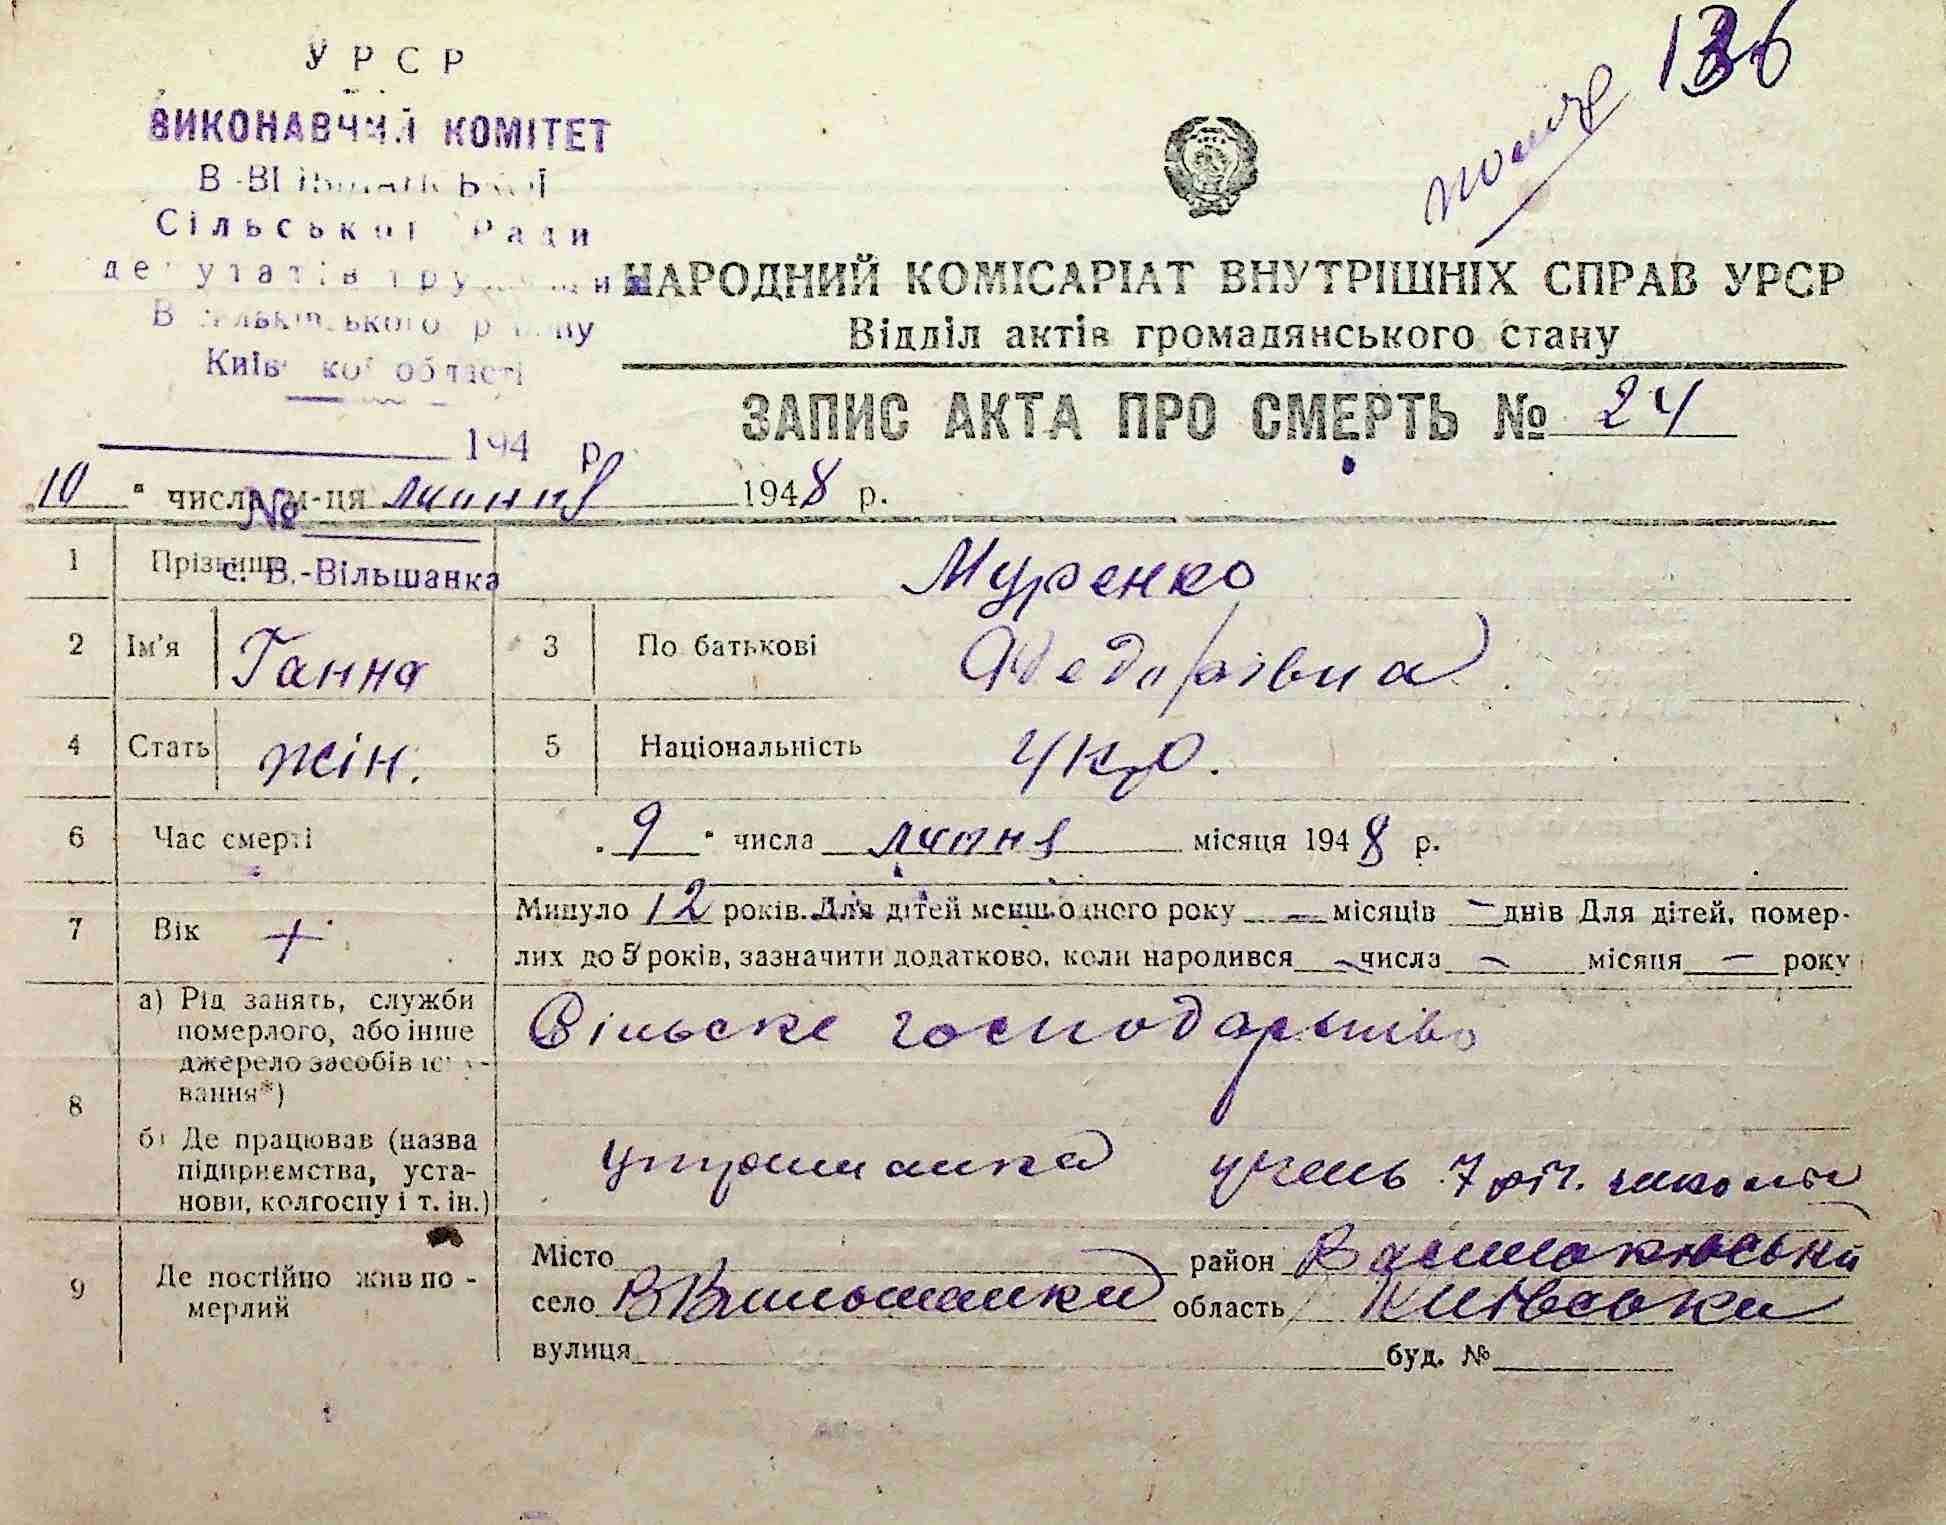 136
УРСР
ВИКОНАВЧИЙ КОМІТЕТ
Сільської Ради
депутатів
району
Київської області
194 р
№
с. В.-Вільшанка
НАРОДНИЙ КОМІСАРІАТ ВНУТРІШНІХ СПРАВ УРСР
Відділ актів громадянського стану
ЗАПИС АКТА ПРО СМЕРТЬ № 24
10 " числа м-ця липня 1948 р.
1 Прізвище Муренко
2 Ім'я Ганна 3 По батькові Федорівна
4 Стать жін. 5 Національність укр.
6 Час смерті 9 " числа липня місяця 1948 р.
7 Вік + Минуло 12 років. Для дітей менш одного року — місяців — днів Для дітей, помер-
лих до 5 років, зазначити додатково, коли народився — числа — місяця — року
8 а) Рід занять, служби
померлого, або інше
джерело засобів існу-
вання*)
Сільске господарьтво
б) Де працював (назва
підприємства, уста-
нови, колгоспу і т. ін.)
утриманка учень 7 річ. школи
9 Де постійно жив по-
мерлий
Місто район
село В Вільшанка область Київська
вулиця буд. №